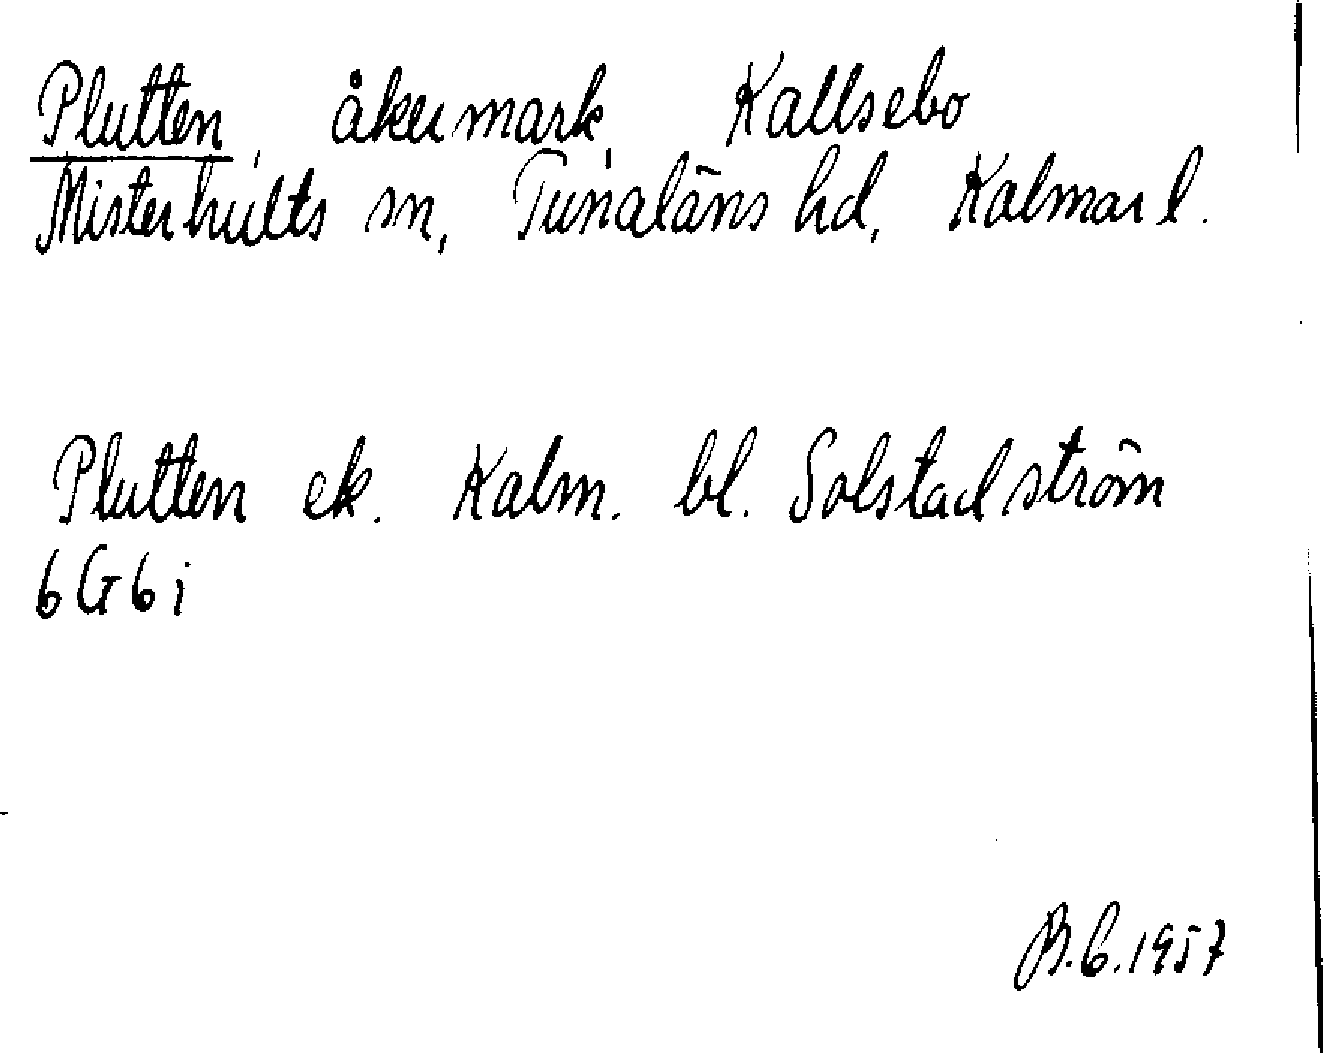 Plutten, åkermark, Kallsebo
Misterhults sn, Tunaläns hd, Kalmar l.
Plutten ek. Kalm. bl. Solstadström
6G6i
B.C.1957